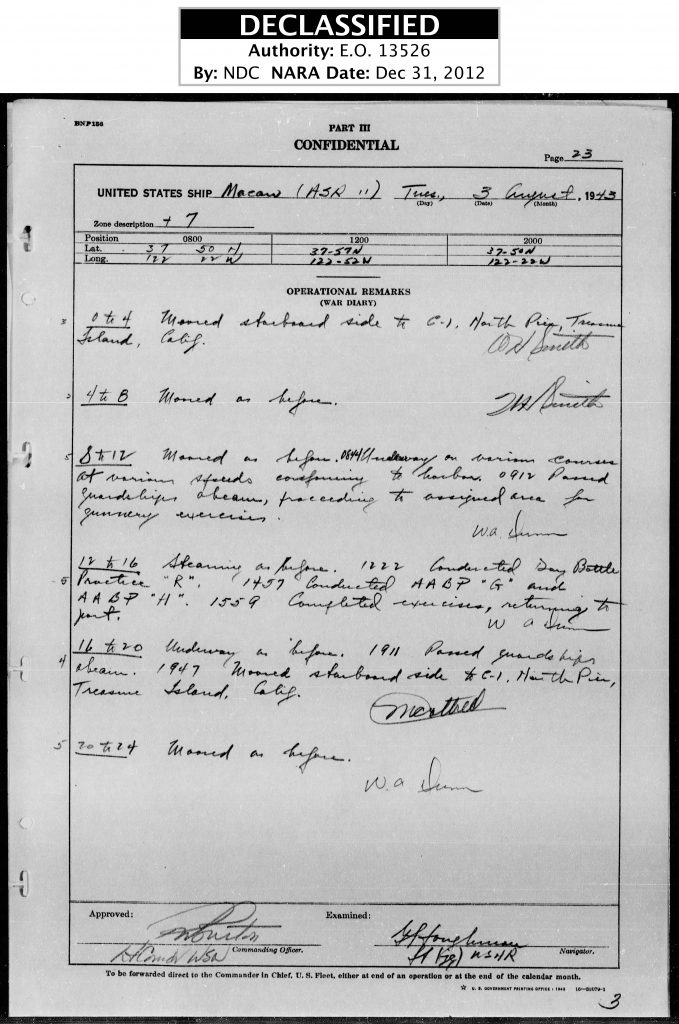 DECLASSIFIED
Authority: E.O. 13526
By: NDC NARA Date: Dec 31, 2012
BNP156
PART III
CONFIDENTIAL
Page 23
UNITED STATES SHIP Macaw (ASR 11) Tues., 3 August, 1943
(Day) (Date) (Month)
Zone description + 7
Position 0800 1200 2000
Lat. 37 50 N 37-57N 37-50N
Long. 122 22 W 122-52W 122-22W
OPERATIONAL REMARKS
(WAR DIARY)
0 to 4 Moored starboard side to C-1, North Pier, Treasure
Island, Calif.
Smith
4 to 8 Moored as before.
Smith
8 to 12 Moored as before. 0844 Underway on various courses
at various speeds conforming to harbor. 0912 Passed
guardships abeam, proceeding to assigned area for
gunnery exercises.
W.A. Dunn
12 to 16 Steaming as before. 1222 Conducted Day Battle
Practice "R". 1457 Conducted AABP "G" and
AABP "H". 1559 Completed exercises, returning to
port.
W A Dunn
16 to 20 Underway as before. 1911 Passed guardships
abeam. 1947 Moored starboard side to C-1, North Pier,
Treasure Island, Calif.
20 to 24 Moored as before.
W.A Dunn
Approved: Examined:
Commanding Officer. Navigator.
USNR
To be forwarded direct to the Commander in Chief, U. S. Fleet, either at end of an operation or at the end of the calendar month.
U. S. GOVERNMENT PRINTING OFFICE : 1943
3